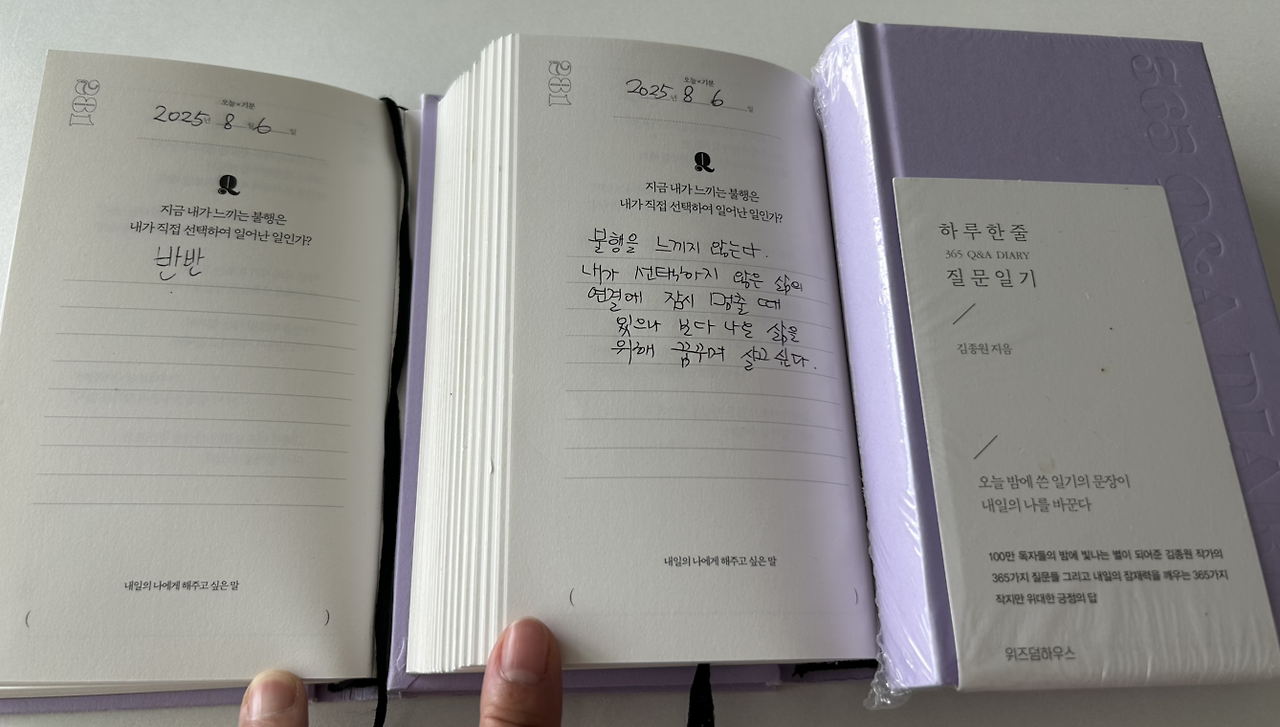 281
오늘*기분
2025년 8월 6일
Q
지금 내가 느끼는 불행은
내가 직접 선택하여 일어난 일인가?
반반
내일의 나에게 해주고 싶은 말
( )
281
오늘*기분
2025년 8 6일
Q
지금 내가 느끼는 불행은
내가 직접 선택하여 일어난 일인가?
불행을 느끼지 않는다.
내가 선택하지 않은 삶의
연결에 잠시 멈출 때
있으나 보다 나은 삶을
위해 꿈꾸며 살고 싶다.
내일의 나에게 해주고 싶은 말
( )
365 Q&A DIA
하루 한 줄
365 Q&A DIARY
질문 일기
김종원 지음
오늘 밤에 쓴 일기의 문장이
내일의 나를 바꾼다
100만 독자들의 밤에 빛나는 별이 되어준 김종원 작가의
365가지 질문들 그리고 내일의 잠재력을 깨우는 365가지
작지만 위대한 긍정의 답
위즈덤하우스